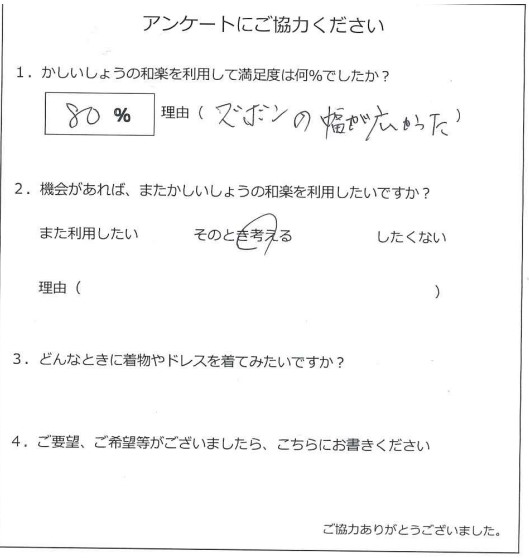 アンケートにご協力ください
1．かしいしょうの和楽を利用して満足度は何%でしたか？
80 % 理由（ズボンの幅が広かった）
2．機会があれば、またかしいしょうの和楽を利用したいですか？
また利用したい そのとき考える したくない
理由（ ）
3．どんなときに着物やドレスを着てみたいですか？
4．ご要望、ご希望等がございましたら、こちらにお書きください
ご協力ありがとうございました。